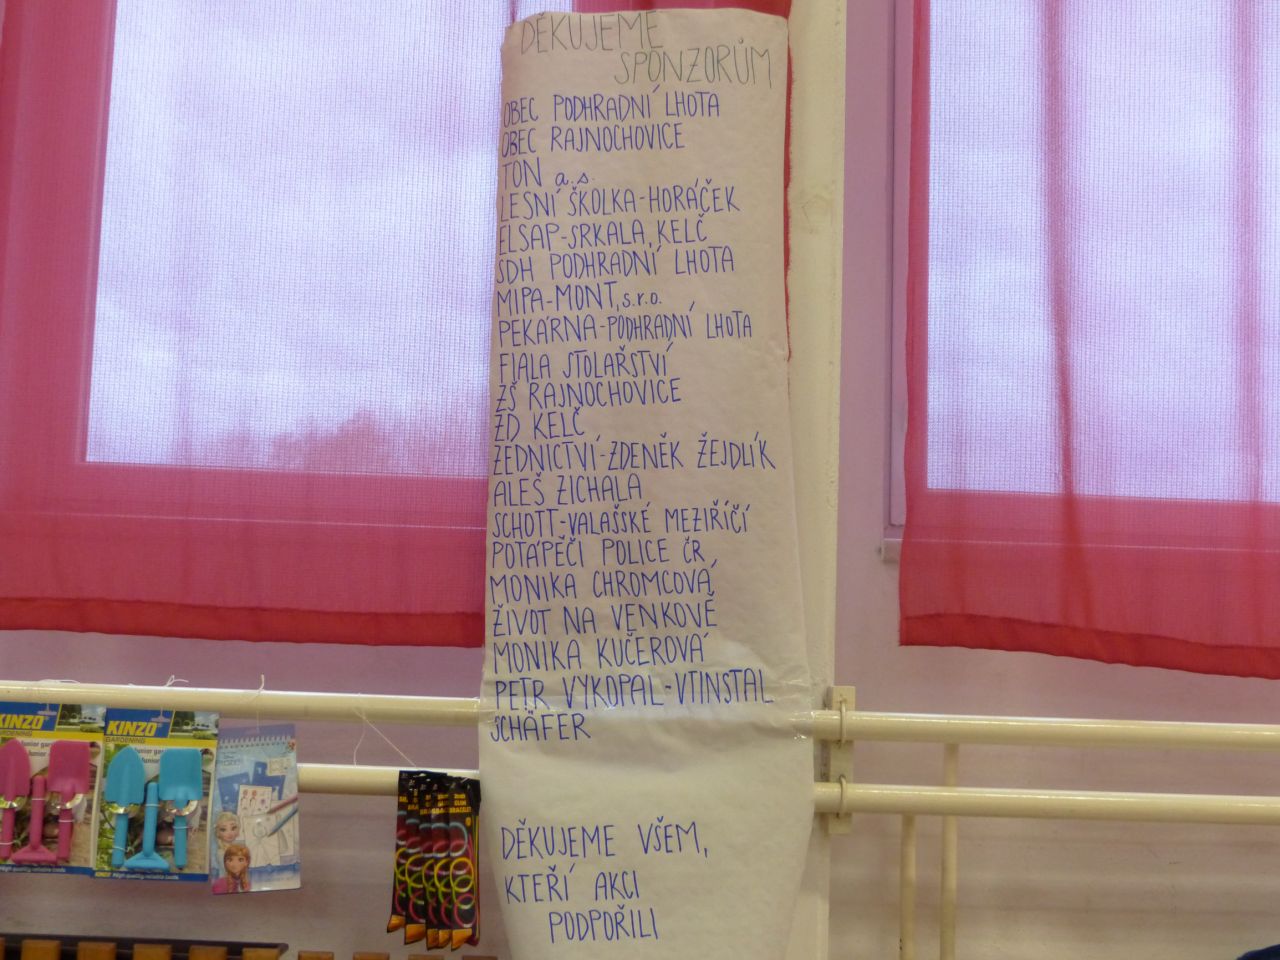 DĚKUJEME
SPONZORŮM
OBEC PODHRADNÍ LHOTA
OBEC RAJNOCHOVICE
TON a.s.
LESNÍ ŠKOLKA-HORÁČEK
ELSAP-SRKALA, KELČ
SDH PODHRADNÍ LHOTA
MIPA-MONT, s.r.o.
PEKÁRNA-PODHRADNÍ LHOTA
FIALA STOLAŘSTVÍ
ZŠ RAJNOCHOVICE
ZD KELČ
ZEDNICTVÍ-ZDENĚK ŽEJDLÍK
ALEŠ ZICHALA
SCHOTT-VALAŠSKÉ MEZIŘÍČÍ
POTÁPĚČI POLICE ČR,
MONIKA CHROMCOVÁ,
ŽIVOT NA VENKOVĚ
MONIKA KUČEROVÁ
PETR VYKOPAL-VTINSTAL
SCHÄFER
DĚKUJEME VŠEM,
KTEŘÍ AKCI
PODPOŘILI
KINZO
GARDENING
KINZO
GARDENING